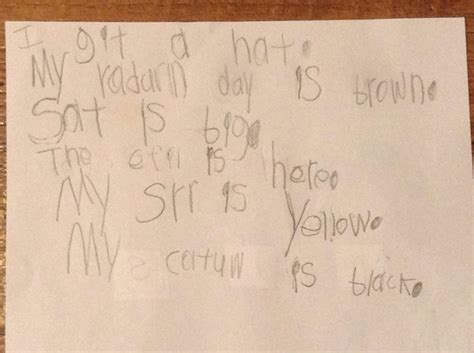 I git a hat.
My radurin day is brown.
Sat is big.
The effl is here.
My srr is yellow.
My catuw is black.